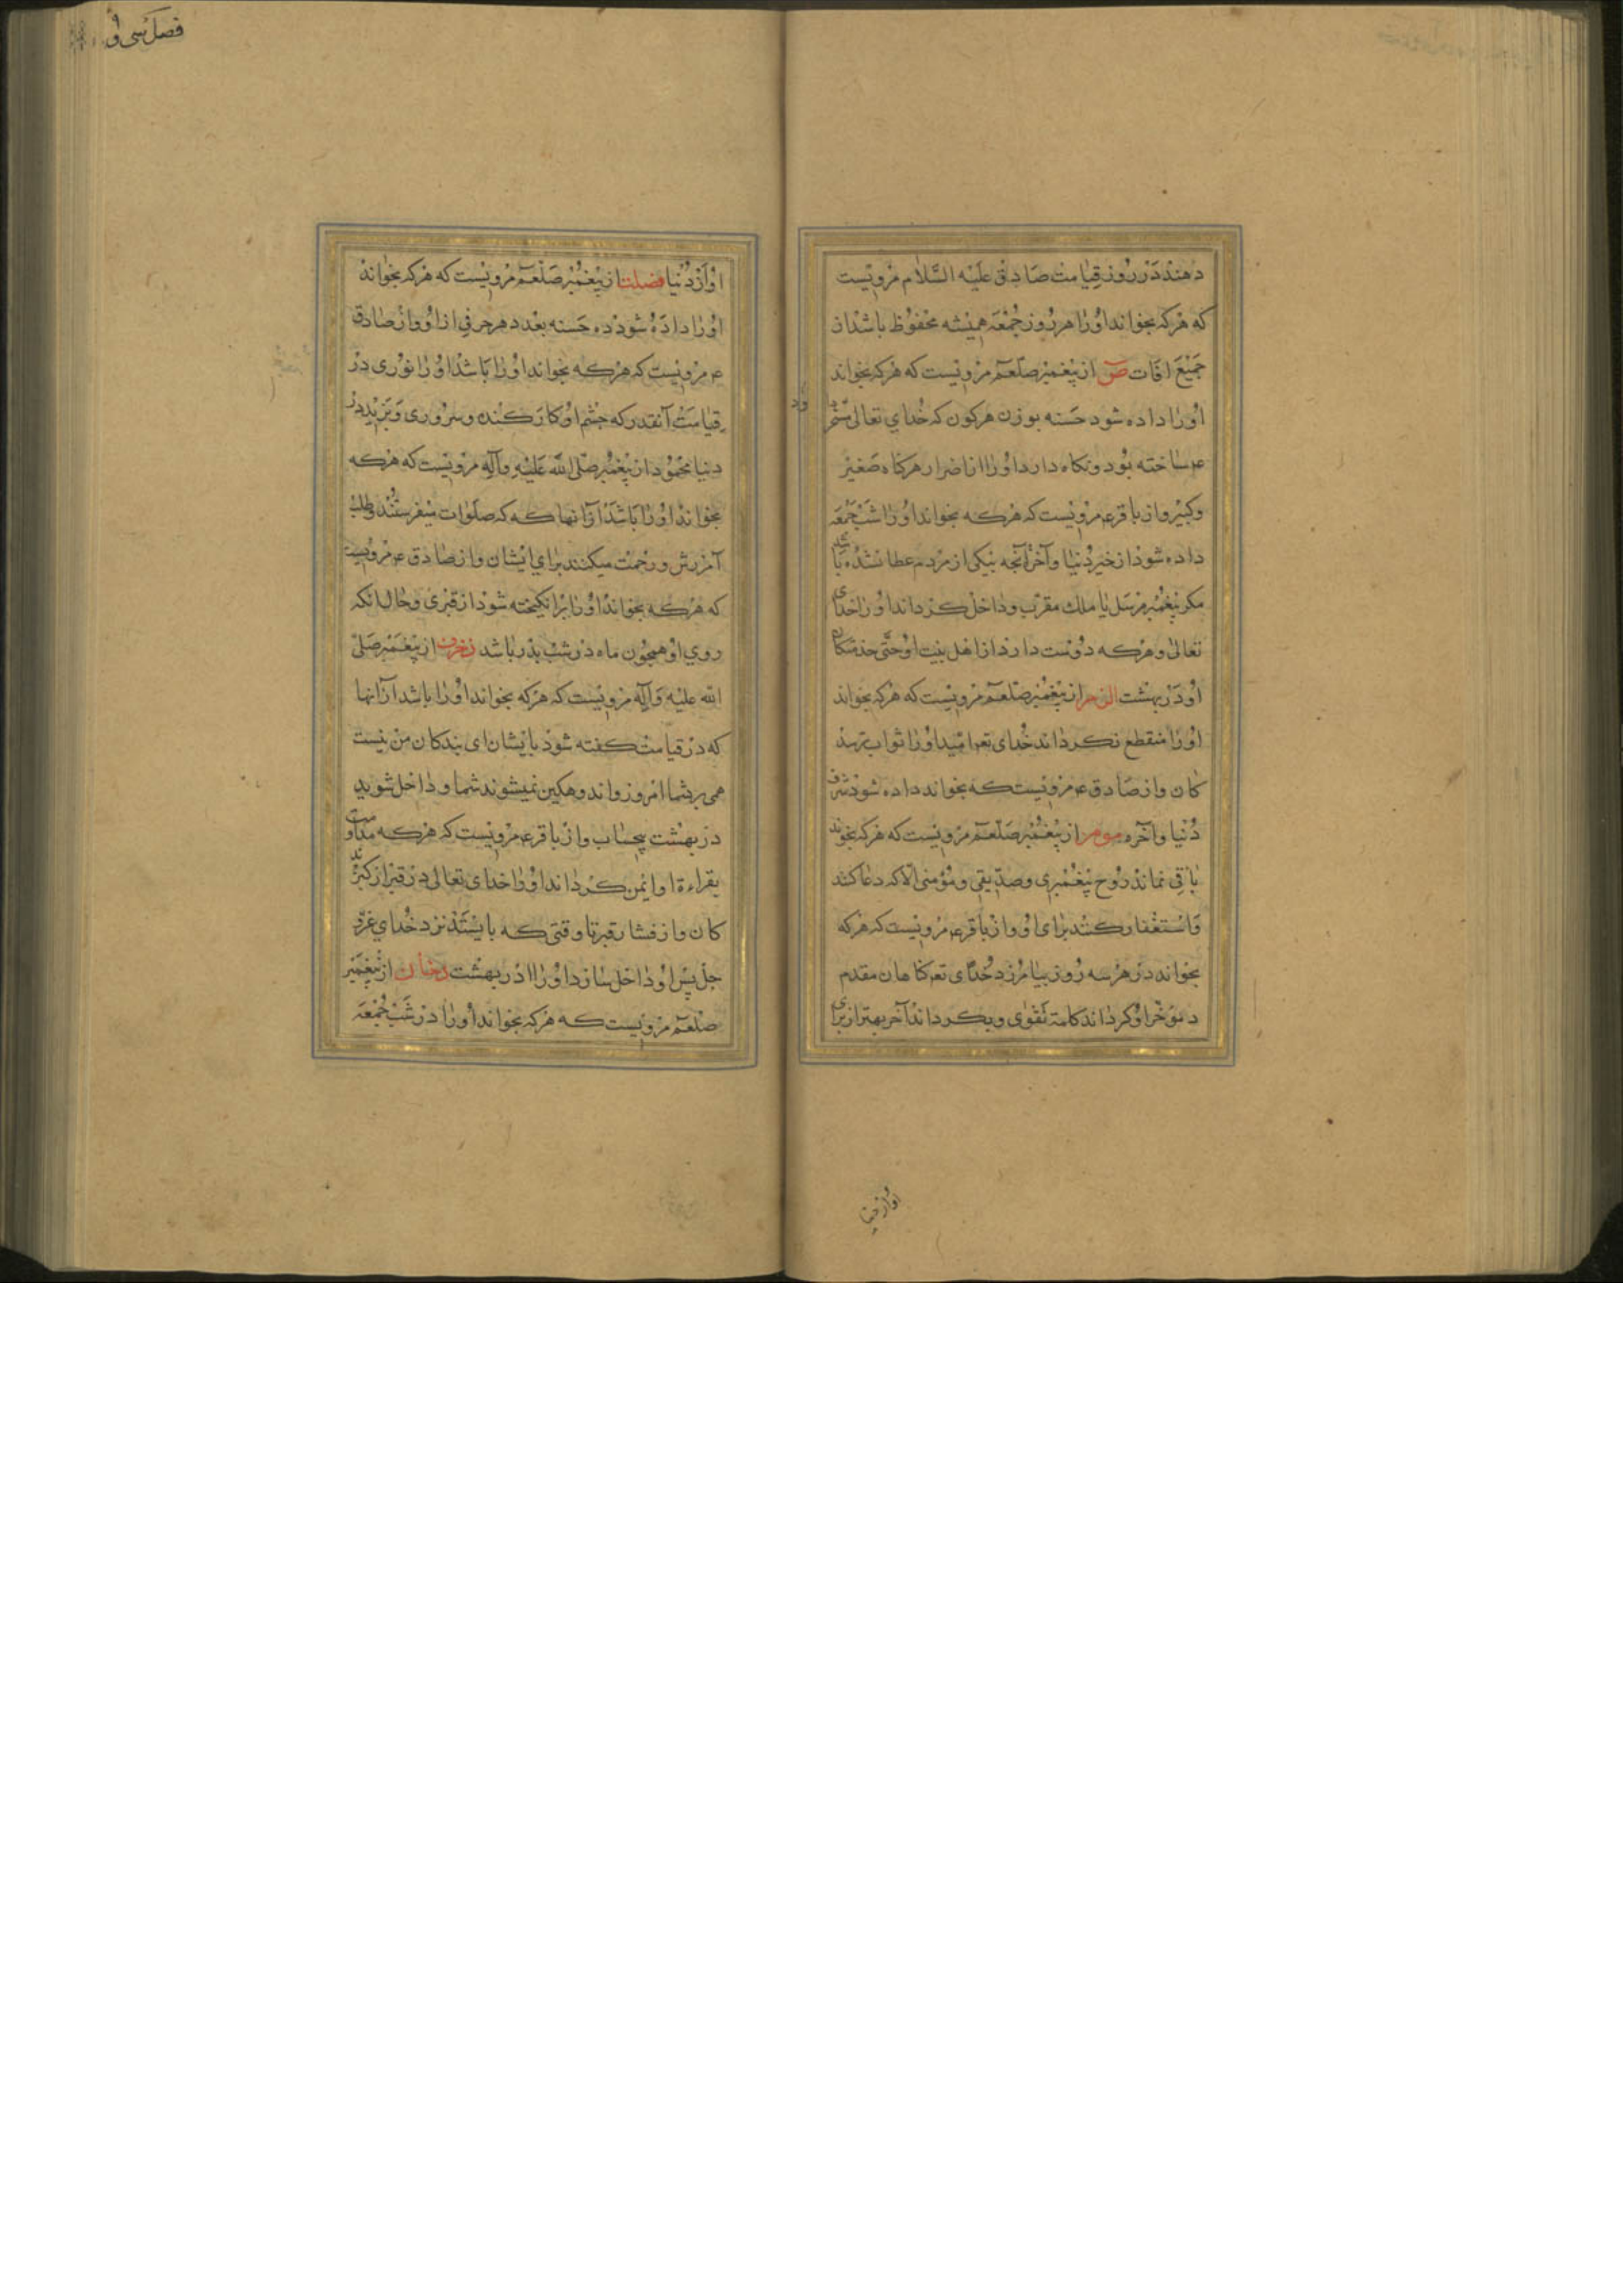 دهند در روز قیامت صادق علیه السلام مرویست
که هر که بخواند او را هر روز جمعه همیشه محفوظ باشد از
جمیع افات ص از پیغمبر صلعم مرویست که هر که بخواند
او را داده شود حسنه بوزن هر کون که خدای تعالی مسخر
داود
ع ساخته بود و نکاه دارد او را از اضرار هر کناه صغیر
و کبیر و از باقر ع مرویست که هر که بخواند او را شب جمعه
داده شود از خیر دنیا و آخرة آنچه بنیکی از مردم عطا نشده باشد
مکر پیغمبر مرسل یا ملک مقرب و داخل کرداند او را خدای
تعالی و هر که دوست دارد از اهل بیت او حتی خذمتکار
او در بهشت الزمر از پیغمبر صلعم مرویست که هر که بخواند
او را منقطع نکرداند خدای تع امید او را ثواب ترسند
کان و از صادق ع مرویست که بخواند داده شود شرف
دنیا و آخره مومن از پیغمبر صلعم مرویست که هر که بخواند
باقی نماند روح پیغمبری و صدیقی و مؤمنی الا که دعا کنند
و استغفار کنند برای او و از باقر ع مرویست که هر که
بخواند در هر سه روز بیامرزد خدای تع کناهان مقدم
و مؤخر او کرداند کلمة تقوی و بکرداند آخر بهتر از برای
او از دنیا
فصل سی و
او از دنیا فصلت از پیغمبر صلعم مرویست که هر که بخواند
او را داده شود ده حسنه بعدد هر حرفی از او و از صادق
ع مرویست که هر که بخواند او را باشد او را نوری در
قیامت آنقدر که چشم او کار کند و سروری و بزید در
دنیا محمود از پیغمبر صلی الله علیه و آله مرویست که هر که
بخواند او را باشد از آنها که که صلوات میفرستند و طلب
آمرزش و رحمت میکنند برای ایشان و از صادق ع مرویست
که هر که بخواند او را برانکیخته شود از قبری و حال انکه
روی او همچون ماه در شب بدر باشد زخرف از پیغمبر صلی
الله علیه و آله مرویست که هر که بخواند او را باشد از آنها
که در قیامت کفته شود بایشان ای بندکان من نیست
همی بر شما امروز و اندوهکین نمیشوند شما و داخل شوید
در بهشت بیحساب و از باقر ع مرویست که هر که مداومت
بقراءة او ایمن کرداند او را خدای تعالی در قبر از کزند
کان و از فشار قبر تا وقتی که بایستد نزد خدای عز و
جل پس او داخل سازد او را در بهشت دخان از پیغمبر
صلعم مرویست که هر که بخواند او را در شب جمعه